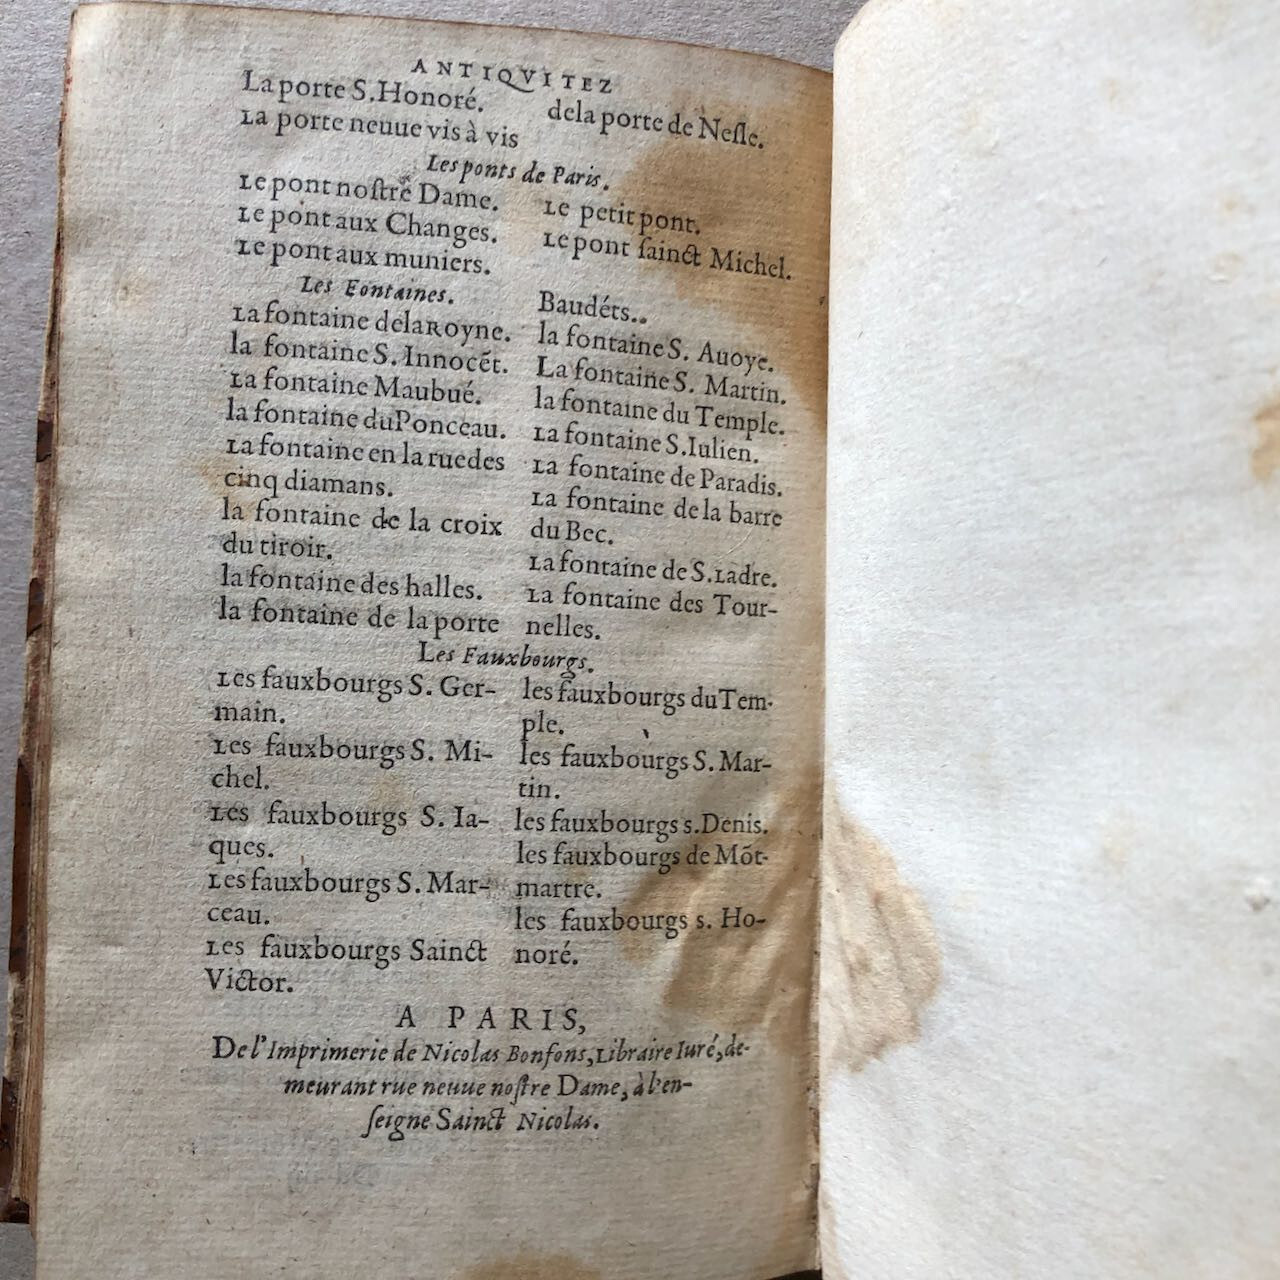 ANTIQVITEZ
La porte S.Honoré.
La porte neuue vis à vis
dela porte de Nesle.
Les ponts de Paris.
Le pont nostre Dame.
Le pont aux Changes.
Le pont aux muniers.
Le petit pont.
Le pont sainct Michel.
Les Fontaines.
La fontaine dela Royne.
la fontaine S. Innocẽt.
La fontaine Maubué.
la fontaine du Ponceau.
La fontaine en la rue des
cinq diamans.
la fontaine de la croix
du tiroir.
la fontaine des halles.
la fontaine de la porte
Baudéts..
la fontaine S. Auoye.
La fontaine S. Martin.
la fontaine du Temple.
La fontaine S.Iulien.
La fontaine de Paradis.
La fontaine dela barre
du Bec.
La fontaine de S.Ladre.
La fontaine des Tour-
nelles.
Les Fauxbourgs.
Les fauxbourgs S. Ger-
main.
Les fauxbourgs S. Mi-
chel.
Les fauxbourgs S. Ia-
ques.
Les fauxbourgs S. Mar-
ceau.
Les fauxbourgs Sainct
Victor.
les fauxbourgs du Tem-
ple.
les fauxbourgs S. Mar-
tin.
les fauxbourgs s.Denis.
les fauxbourgs de Mõt-
martre.
les fauxbourgs s. Ho-
noré.
A PARIS,
De l'Imprimerie de Nicolas Bonfons, Libraire Iuré, de-
meurant rue neuue nostre Dame, à l'en-
seigne Sainct Nicolas.